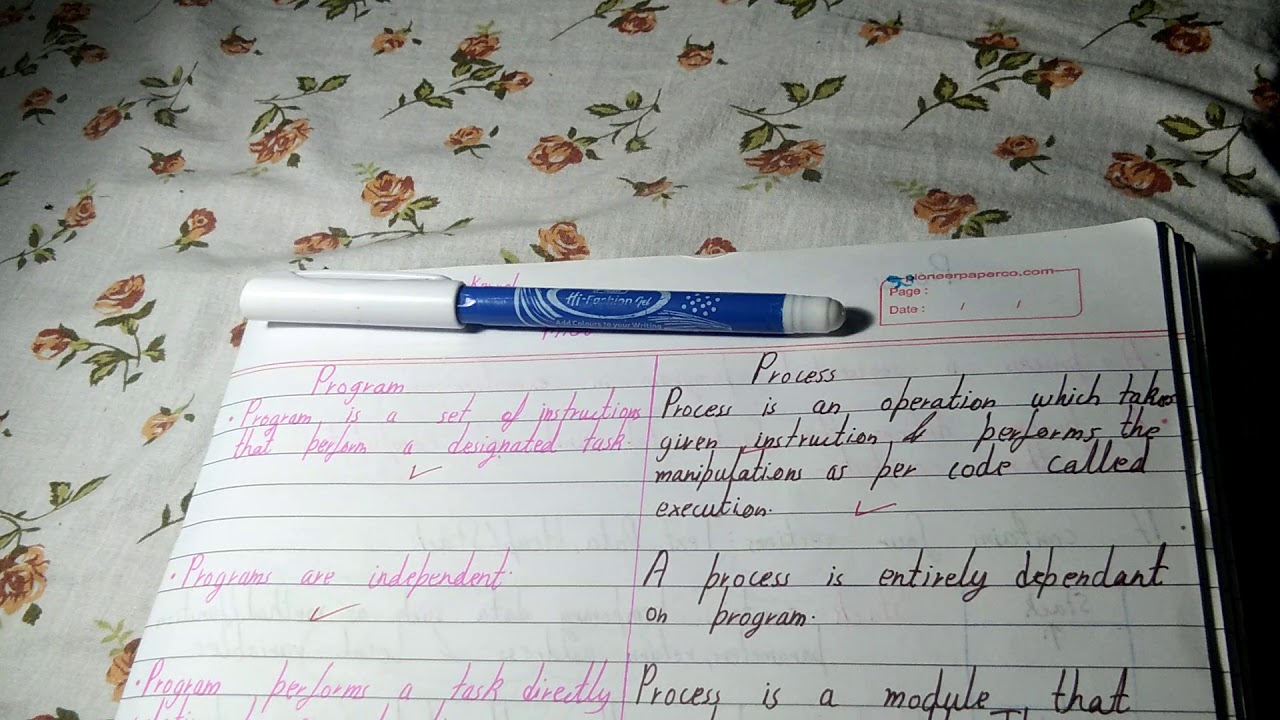 pioneerpaperco.com
Page :
Date : / /
Hi-Fashion Gel
Add Colours to your Writing
Program
• Program is a set of instructions
that perform a designated task.
• Programs are independent.
• Program performs a task directly
Process
Process is an operation which takes
given instruction & performs the
manipulations as per code called
execution.
A process is entirely dependant
on program.
Process is a module that